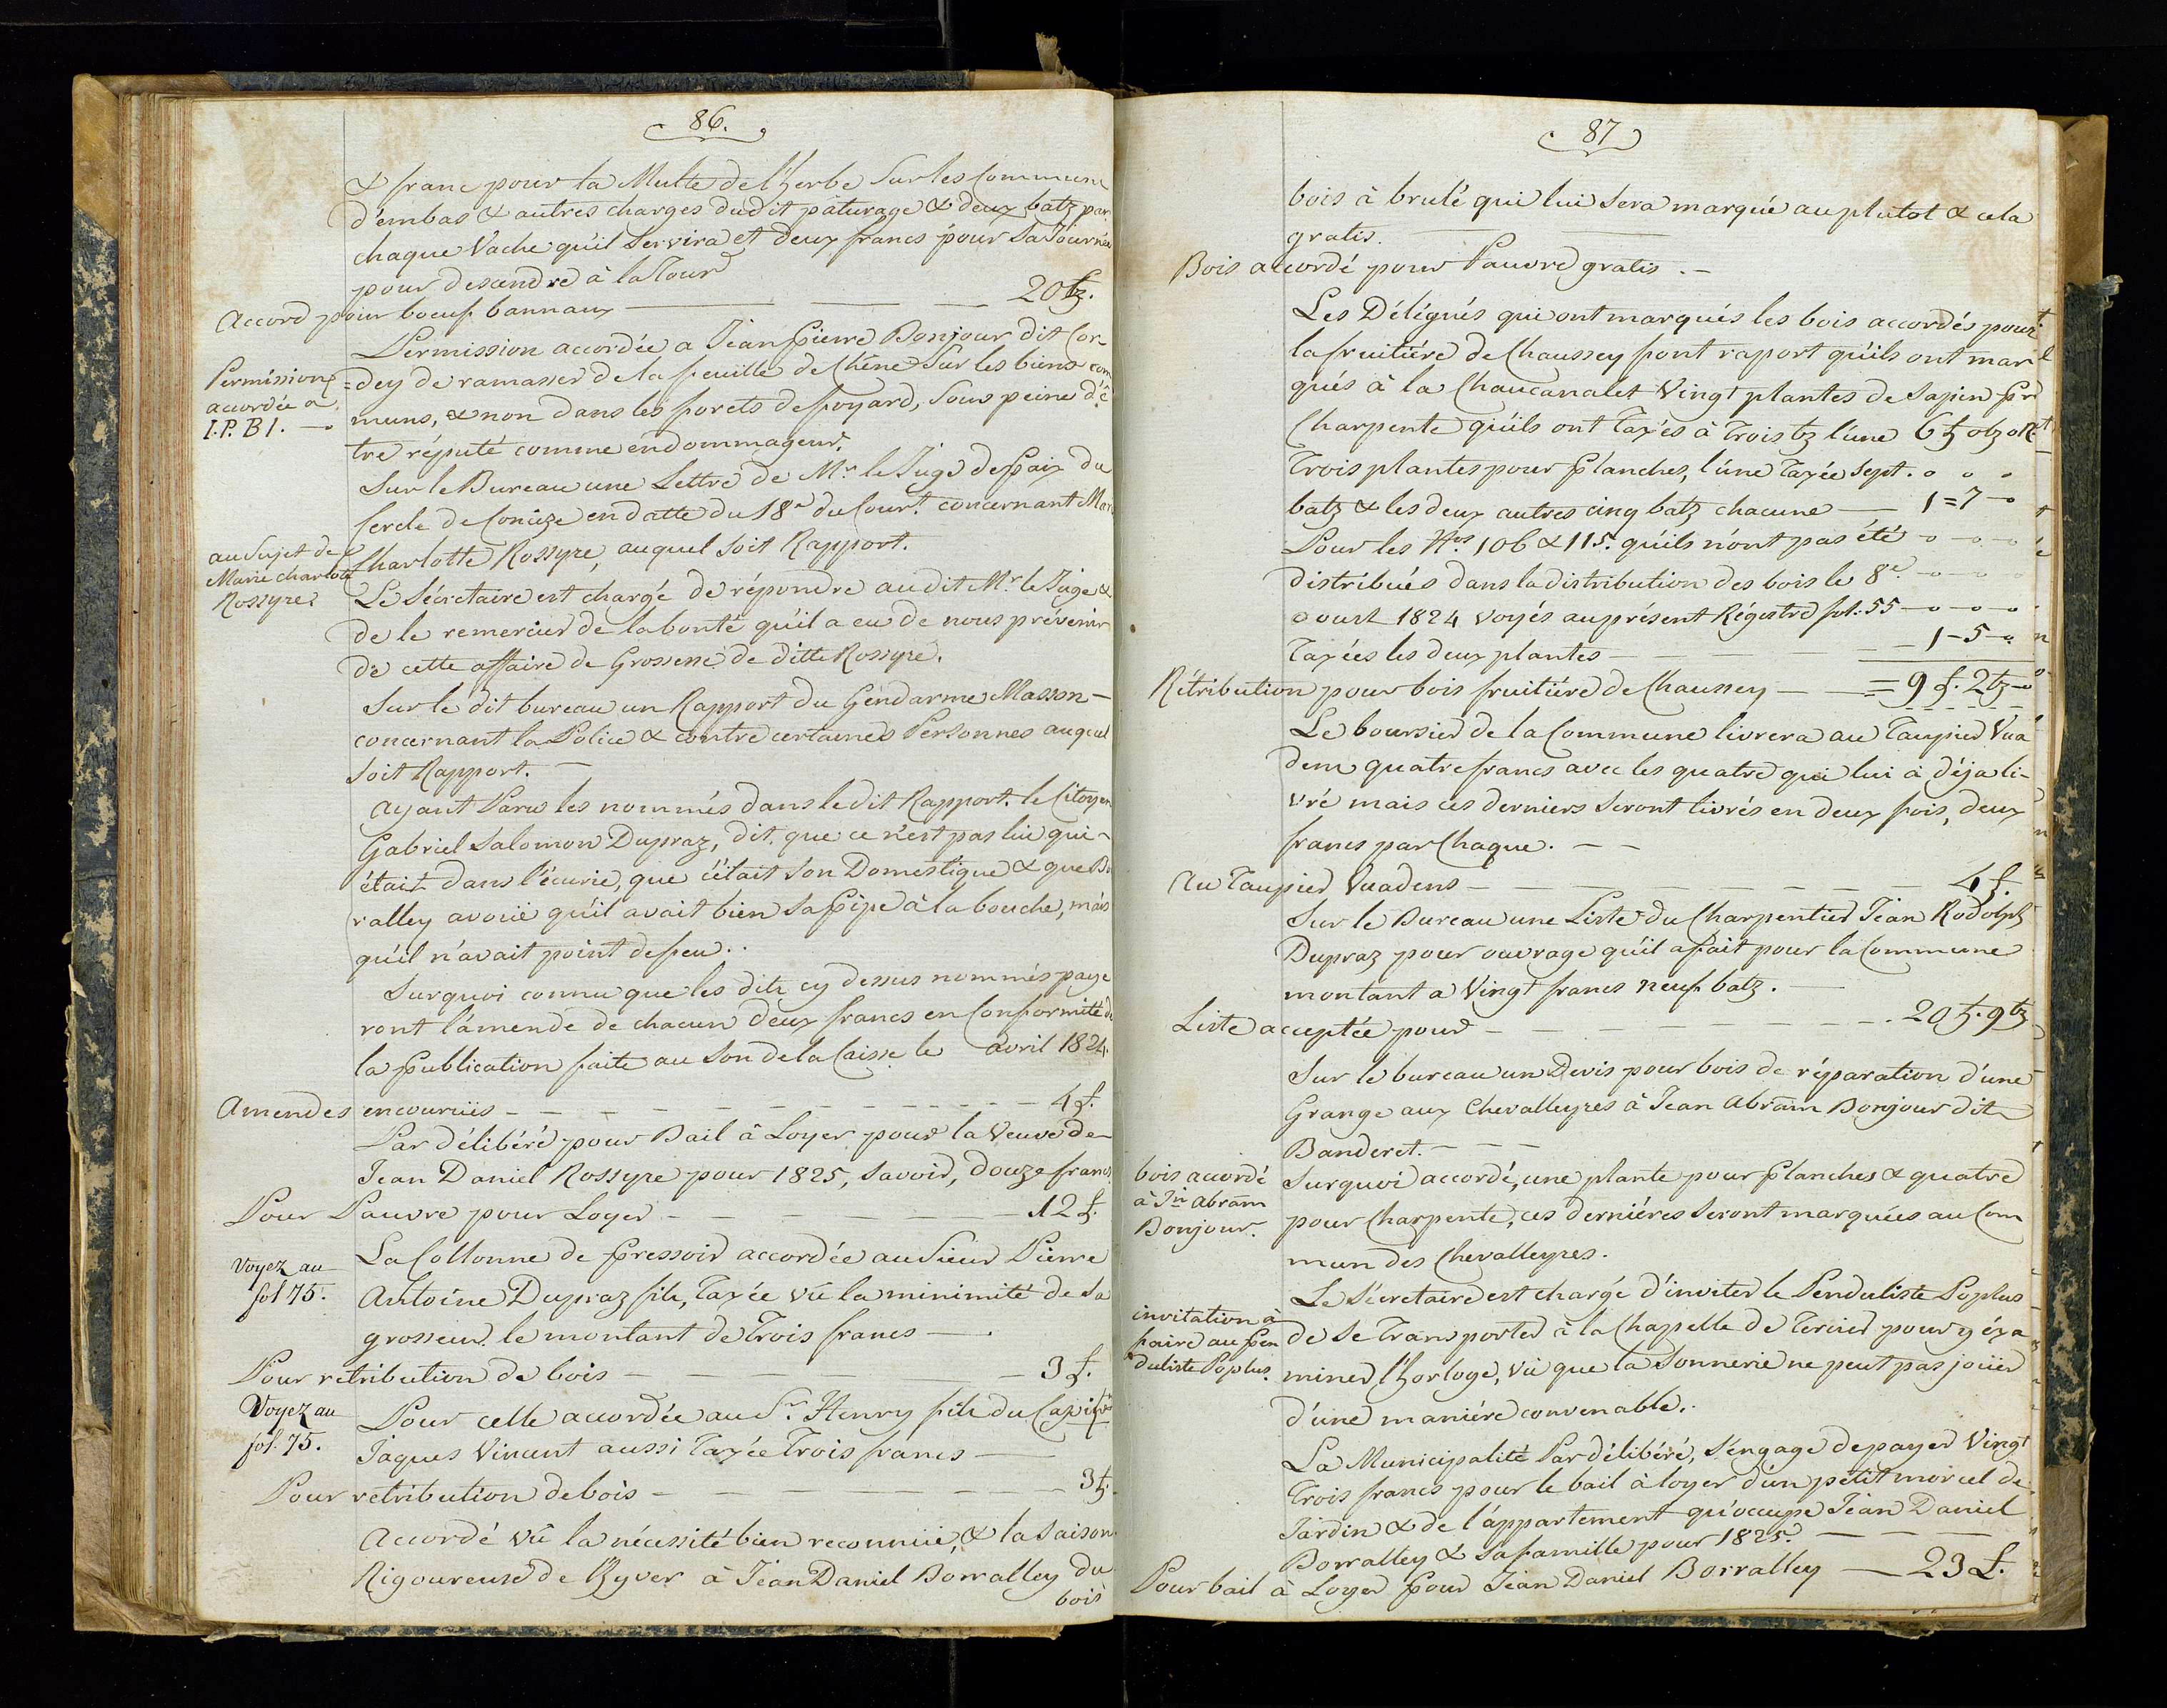 86.
& franc pour la Multe de l'herbe Sur les Commune
d'embas & autres charges dudit pâturage & deux batz par
chaque Vache qu'il Servira et deux francs pour Sa Journée
pour descendre à la Tour
Accord pour boeuf bannaux — — — 20 bz.
Permission accordée a Jean Pierre Bonjour dit Cor-
Permission
=dey de ramasser de la feuille de Chêne Sur les biens com
accordée a
muns, & non dans les forets de foyard, Sous peine d'ê
I. P. B J. —
tre réputé comme endommageur.
Sur le Bureau une Lettre de Mr. le Juge de Paix du
Cercle de Conize en datte du 18e du Court. concernant Marie
au Sujet de
Charlotte Rossyre, auquel soit Rapport.
Marie charlote
Rossyre
Le Sécretaire est chargé de répondre au dit Mr. le Juge &
de le remercier de la bonté qu'il a eu de nous prévenir
de cette affaire de Grossesse de ditte Rossyre.
Sur le dit bureau un Rapport du Gendarme Masson —
concernant la Police & contre certaines Personnes auquel
soit Rapport. —
Ayant Paru les nommés dans le dit Rapport. le Citoyen
Gabriel Salomon Dupraz, dit que ce n'est pas lui qui
était dans l'écurie, que c'était Son Domestique & que Bo
ralley avoüé qu'il avait bien Sa Pipe à la bouche, mais
qu'il n'avait point de feu..
Surquoi connu que les dits cy dessus nommés paye
ront l'amende de chacun deux francs en Conformité de
la Publication faite au Son de la Caisse le avril 1824.
Amendes encouruës — — — 4 f.
Par délibéré pour Bail à Loyer pour la Veuve de
Jean Daniel Rossyre pour 1825, Savoir, douze francs
Pour Pauvre pour Loyer — — — 12 f.
La Collonne de Pressoir accordée au Sieur Pierre
Voyez au
fol 75.
Antoine Dupraz fils, Taxée vû la minimité de Sa
grosseur. le montant de Trois francs — .
Pour retribution de bois — — — 3 f.
Voyez au
Pour celle accordée au Sr. Henry fils du
fol. 75.
Jaques Vincent aussi Taxée Trois francs —
Pour retribution de bois — — — 3 f.
Accordé vû la nécessité bien reconnüe, & la Saison
Rigoureuse de l'hyver à Jean Daniel Borralley du
bois
87
bois à brulé qui lui Sera marquée au plutot & cela
gratis.
Bois accordé pour Pauvre gratis. —
Les Délégués qui ont marqués les bois accordés pour
la fruitiére de Chaussey font raport qu'ils ont mar
qués à la Chaucanalet Vingt plantes de Sapin pr
Charpente qu'ils ont Taxés à Trois bz l'une 6 f. 0 bz 0 R.
Trois plantes pour Planches, l'une Taxée Sept. o o o
batz & les deux autres cinq batz chacune — 1 = 7 — o
Pour les Nos. 106 & 115. qu'ils n'ont pas été — o — o — o
distribués dans la distribution des bois le 8e. — o — o — o
aoust 1824 voyés au présent Régistre fol. 55 — o — o — o
Taxées les deux plantes — — — 1 — 5 — o
Rétribution pour bois fruitiére de Chaussey — = 9 f. 2 bz — o
Le boursier de la Commune livrera au Taupier Vua
dens quatre francs avec les quatre qui lui à déja li-
vré mais ces derniers Seront livrés en deux fois, deux
francs par Chaque. — —
Au Taupier Vuadens — — — 4 f.
Sur le Bureau une Liste du Charpentier Jean Rodolph
Dupraz pour ouvrage qu'il a fait pour la Commune
montant a Vingt francs neuf batz. —
Liste acceptée pour — — — 20 f. 9 bz
Sur le bureau un Devis pour bois de réparation d'une
Grange aux Chevalleyres à Jean Abram Bonjour dit
Banderet. — — —
bois accordé
Surquoi accordé, une plante pour Planches & quatre
à Jn Abram
Bonjour.
pour Charpente, ces derniéres Seront marquées au Com
mun des Chevalleyres.
Le Sécretaire est chargé d'inviter le Penduliste Poplus
invitation à
faire au Pen
de Se Transporter à la Chapelle de Tercier pour y éxa
duliste Poplus.
miner l'horloge, vû que la Sonnerie ne peut pas joüer
d'une maniére convenable.
La Municipalité Par délibéré, S'engage de payer Vingt
Trois francs pour le bail à loyer d'un petit morcel de
Jardin & de l'appartement qu'occupe Jean Daniel
Borralley & Sa famille pour 1825. — — —
Pour bail à Loyer pour Jean Daniel Borralley — 23 f.